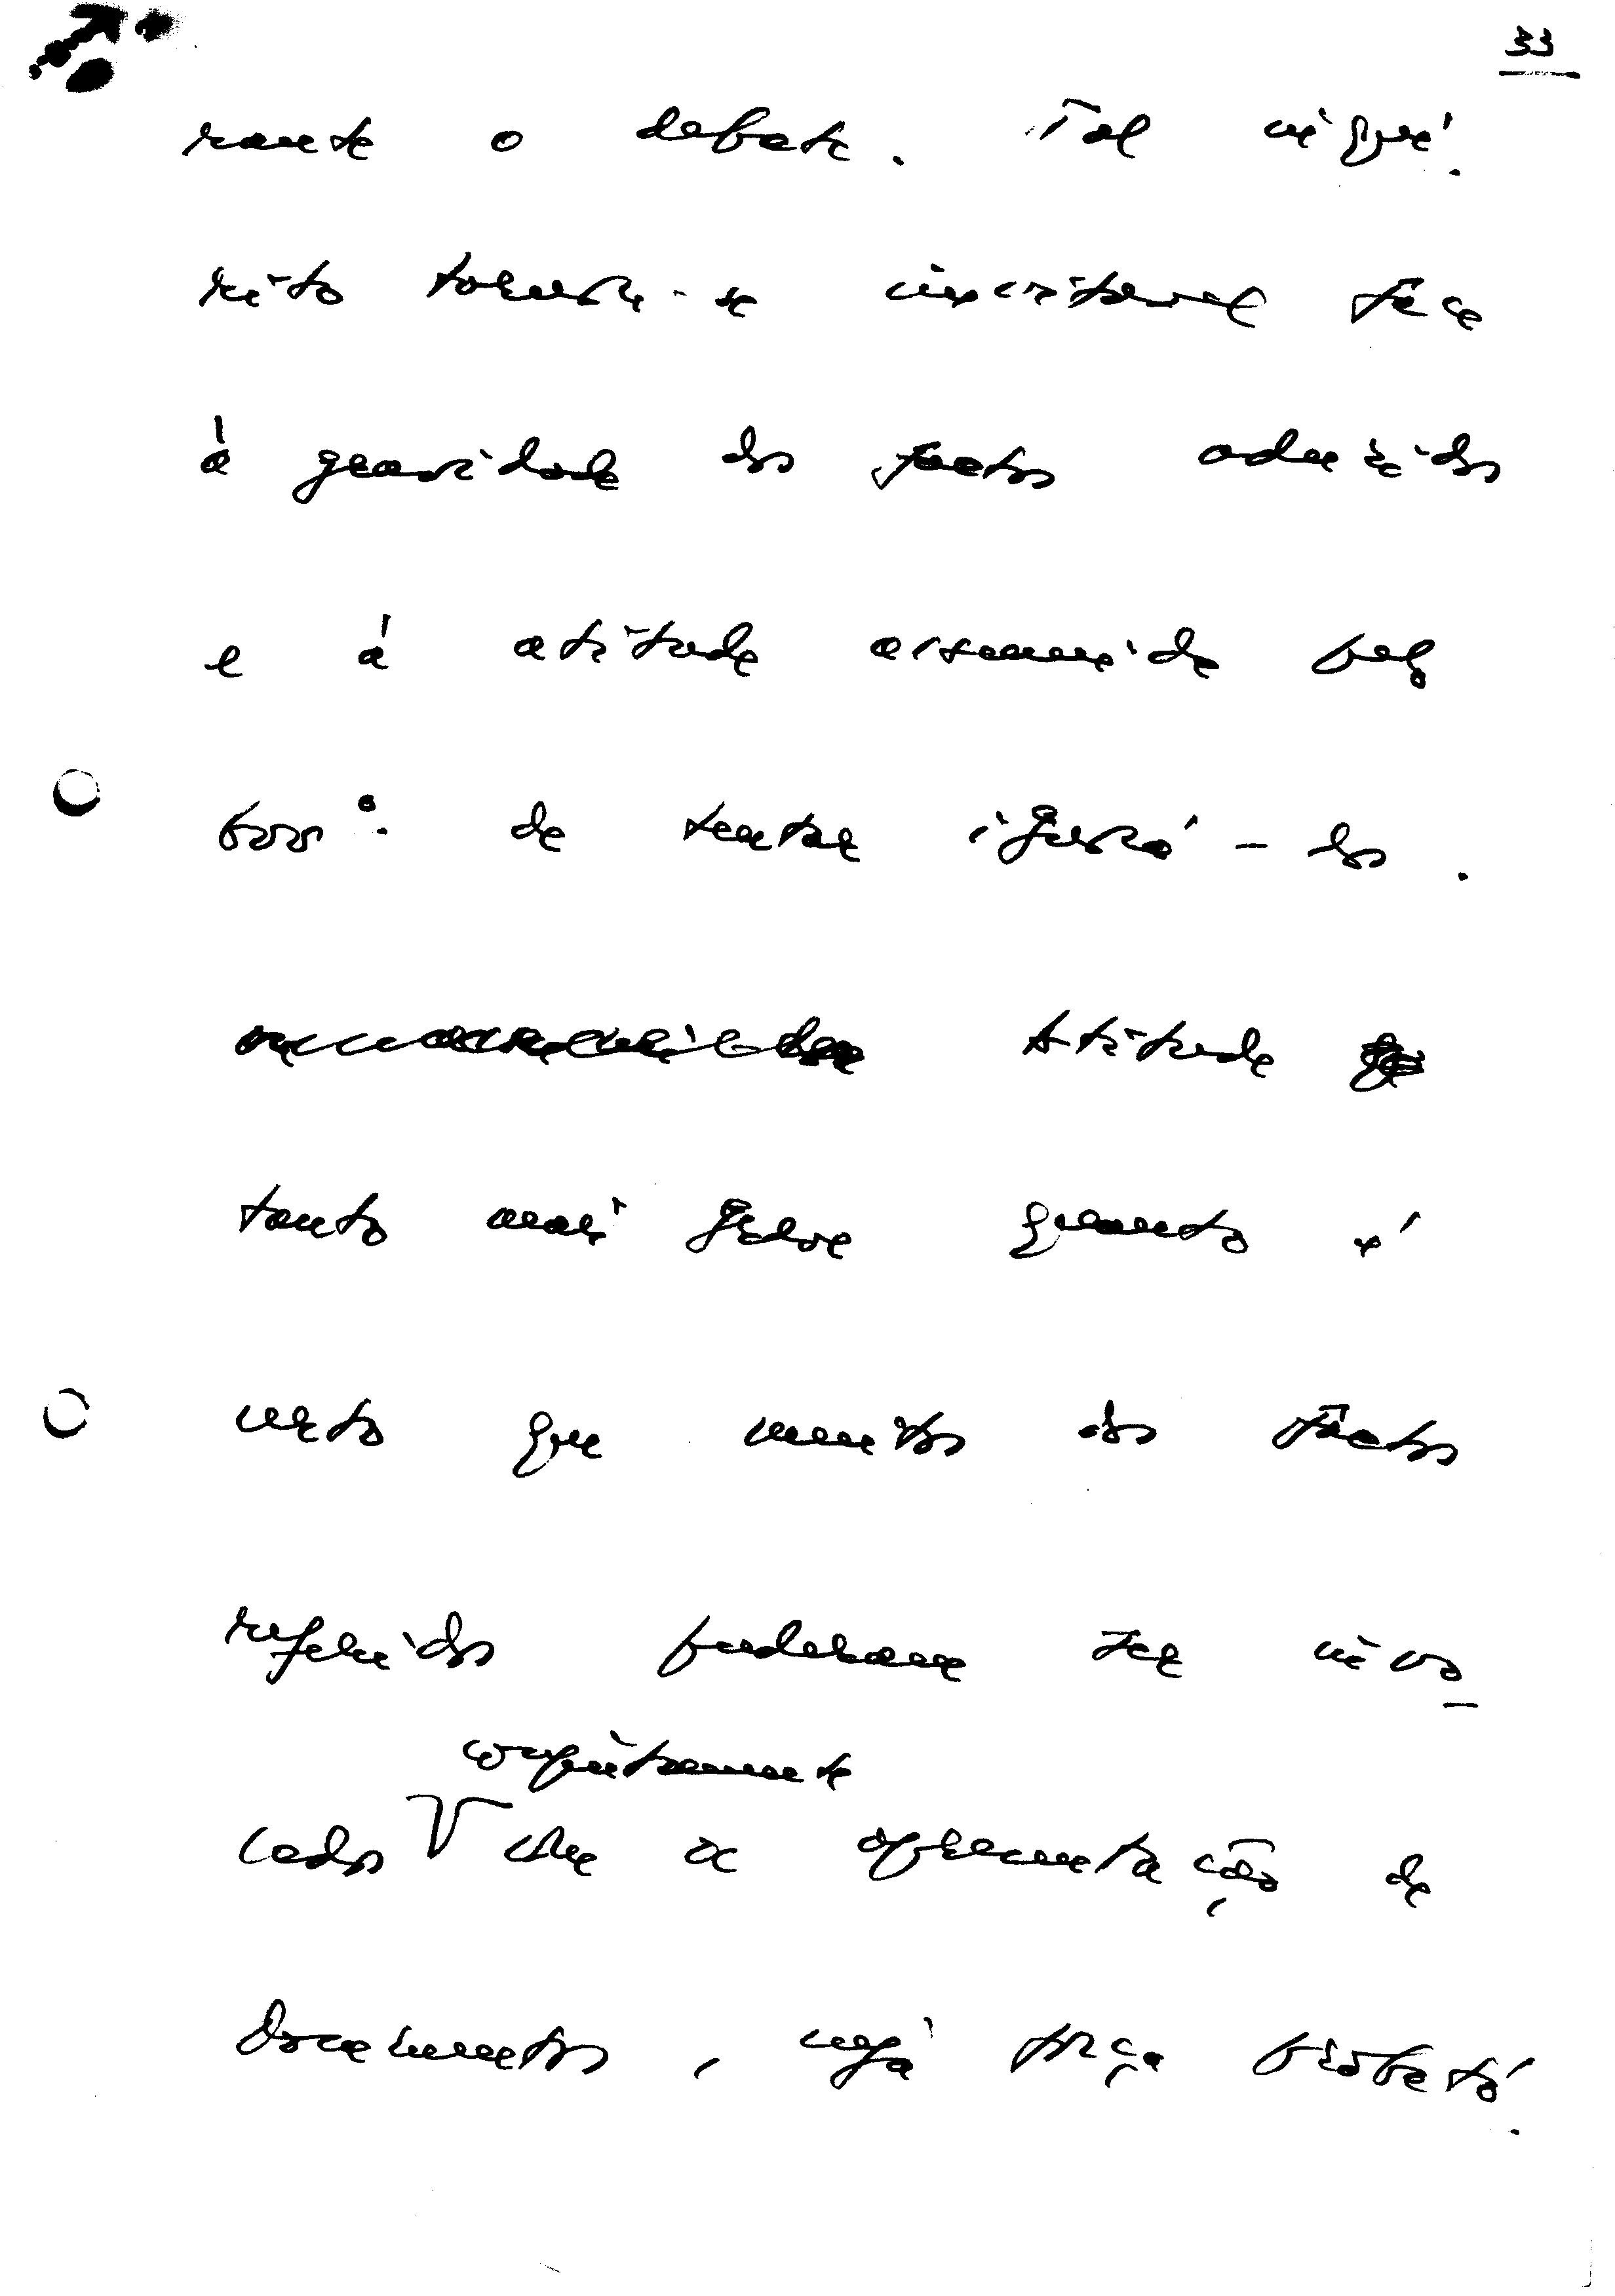 33
rante o debate. Tal inqué-
rito tornou-se inevitável face
à gravidade dos factos aduzidos
e à atitude assumida pelo
Gov.º de tentar ignorá-los.
Atitude
tanto mais grave quanto é
certo que muitos dos factos
referidos puderam ser invo-
conjuntamente
cados com a apresentação de
documentos, cuja força probató-